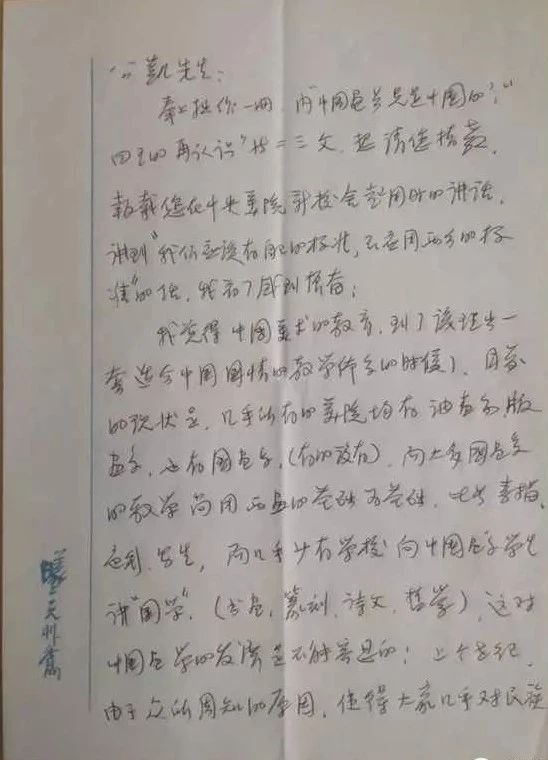 凯先生:
奉上拙作一册,内"中国画首先是中国的","
四王的再认识"等二三文,想请您指教。
报载您在中央美院新校舍启用时的讲话,
讲到"我们应该有自己的标准,不要用西方的标
准"的话,我初闻感到振奋;
我觉得中国美术的教育,到了该理出一
套适合中国国情的教学体系的时候了,目前
的现状是,几乎所有的美院均有油画系、版
画系,也有国画系,(有的没有),而大多国画系
的教学尚用西画的基础为基础,比如素描、
色彩、写生,而几乎少有学校向中国画系学生
讲"国学",(书画、篆刻、诗文、哲学),这对
中国画学的发展是不能害思的;上个世纪,
由于众所周知的原因,使得大家几乎对民族